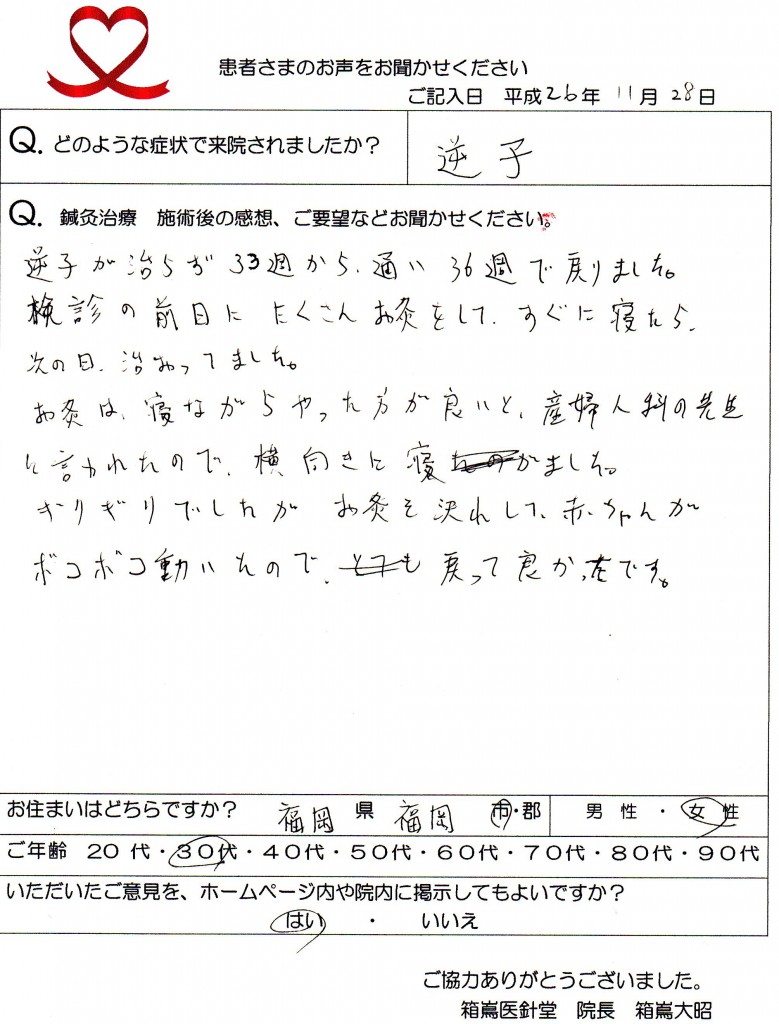 患者さまのお声をお聞かせください
ご記入日 平成26年 11月 28日
Q. どのような症状で来院されましたか? 逆子
Q. 鍼灸治療 施術後の感想、ご要望などお聞かせください。
逆子が治らず33週から、通い36週で戻りました。
検診の前日にたくさんお灸をして、すぐに寝たら、
次の日、治おってました。
お灸は、寝ながらやった方が良いと、産婦人科の先生
に言われたので、横向きに寝がました。
ギリギリでしたが お灸を決れして、赤ちゃんが
ボコボコ動いたので、戻って良かったです。
お住まいはどちらですか? 福岡 県 福岡 市・郡 男性・女性
ご年齢 20代・30代・40代・50代・60代・70代・80代・90代
いただいたご意見を、ホームページ内や院内に掲示してもよいですか?
はい ・ いいえ
ご協力ありがとうございました。
箱嶌医針堂 院長 箱嶌大昭